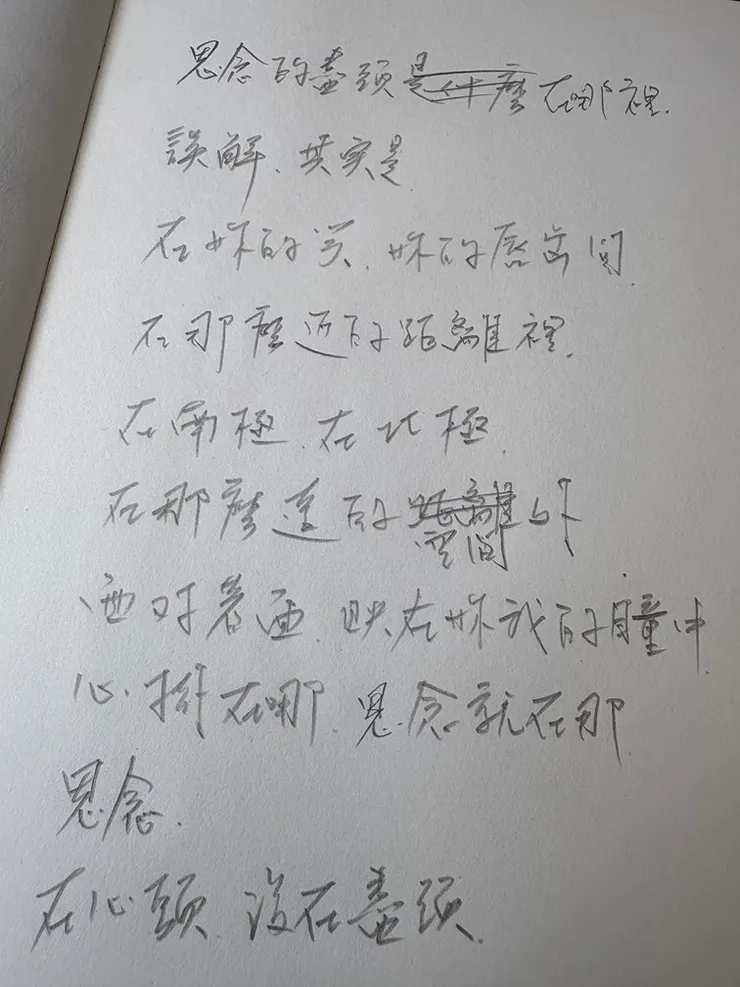 思念的盡頭是什麼在哪裡.
誤解.其實是.
在妳的笑.妳的唇齒間.
在那麼近的距離裡.
在南極.在北極.
在那麼遠的距離外
空間
面對著面.映在妳我的瞳中
心掛在哪.思念就在那.
思念.
在心頭.沒在盡頭.